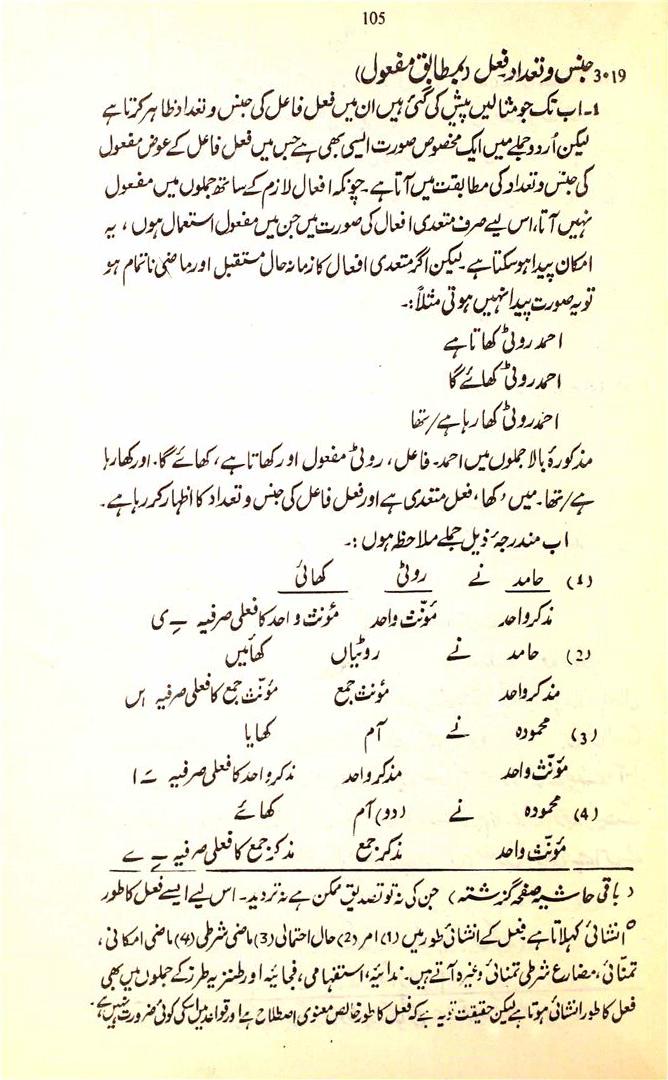 105
3.19 جنس و تعداد فعل (بمطابق مفعول)
1۔ اب تک جو مثالیں پیش کی گئی ہیں ان میں فعل فاعل کی جنس و تعداد ظاہر کرتا ہے
لیکن اُردو جملے میں ایک مخصوص صورت ایسی بھی ہے جس میں فعل فاعل کے عوض مفعول
کی جنس و تعداد کی مطابقت میں آتا ہے۔ چونکہ افعال لازم کے ساتھ جملوں میں مفعول
نہیں آتا، اس لیے صرف متعدی افعال کی صورت میں جن میں مفعول استعمال ہوں، یہ
امکان پیدا ہو سکتا ہے۔ لیکن اگر متعدی افعال کا زمانہ حال مستقبل اور ماضی ناتمام ہو
تو یہ صورت پیدا نہیں ہوتی مثلاً:۔
احمد روٹی کھاتا ہے
احمد روٹی کھائے گا
احمد روٹی کھا رہا ہے/تھا
مذکورۂ بالا جملوں میں احمد۔ فاعل، روٹی مفعول اور کھاتا ہے، کھائے گا۔ اور کھا رہا
ہے/تھا۔ میں 'کھا، فعل متعدی ہے اور فعل فاعل کی جنس و تعداد کا اظہار کر رہا ہے۔
اب مندرجۂ ذیل جملے ملاحظہ ہوں:۔
(1) حامد نے روٹی کھائی
مذکر واحد مؤنّث واحد مؤنث واحد کا فعلی صرفیہ ـِ ی
(2) حامد نے روٹیاں کھائیں
مذکر واحد مؤنث جمع مؤنّث جمع کا فعلی صرفیہ یں
(3) محمودہ نے آم کھایا
مؤنّث واحد مذکر واحد مذکر واحد کا فعلی صرفیہ ـَ ا
(4) محمودہ نے (دو) آم کھائے
مؤنّث واحد مذکر جمع مذکر جمع کا فعلی صرفیہ ـِ ے
(باقی حاشیہ صفحہ گزشتہ) جن کی نہ تو تصدیق ممکن ہے نہ تردید۔ اس لیے ایسے فعل کا طور
انشائی کہلاتا ہے۔ فعل کے انشائی طور میں (1) امر (2) حال احتمالی (3) ماضی شرطی (4) ماضی امکانی،
تمنّائی، مضارع شرطی تمنائی وغیرہ آتے ہیں۔ ندائیہ، استفہامی، فجائیہ اور طنزیہ طرز کے جملوں میں بھی
فعل کا طور انشائی ہوتا ہے لیکن حقیقت تو یہ ہے کہ فعل کا طور خالص معنوی اصطلاح ہے اور قواعد میں اسکی کوئی ضرورت نہیں ہے۔